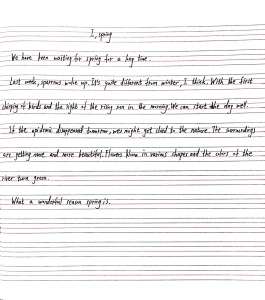 I, spring
We have been waiting for spring for a long time.
Last week, sparrows woke up. It's quite different from winter, I think. With the first
chirping of birds and the sight of the rising sun in the morning, We can start the day well.
If the epidemic disappeared tomorrow, we might get closed to the nature. The surroundings
are getting more and more beautiful. Flowers bloom in various shapes and the colors of the
river turn green.
What a wonderful season spring is.